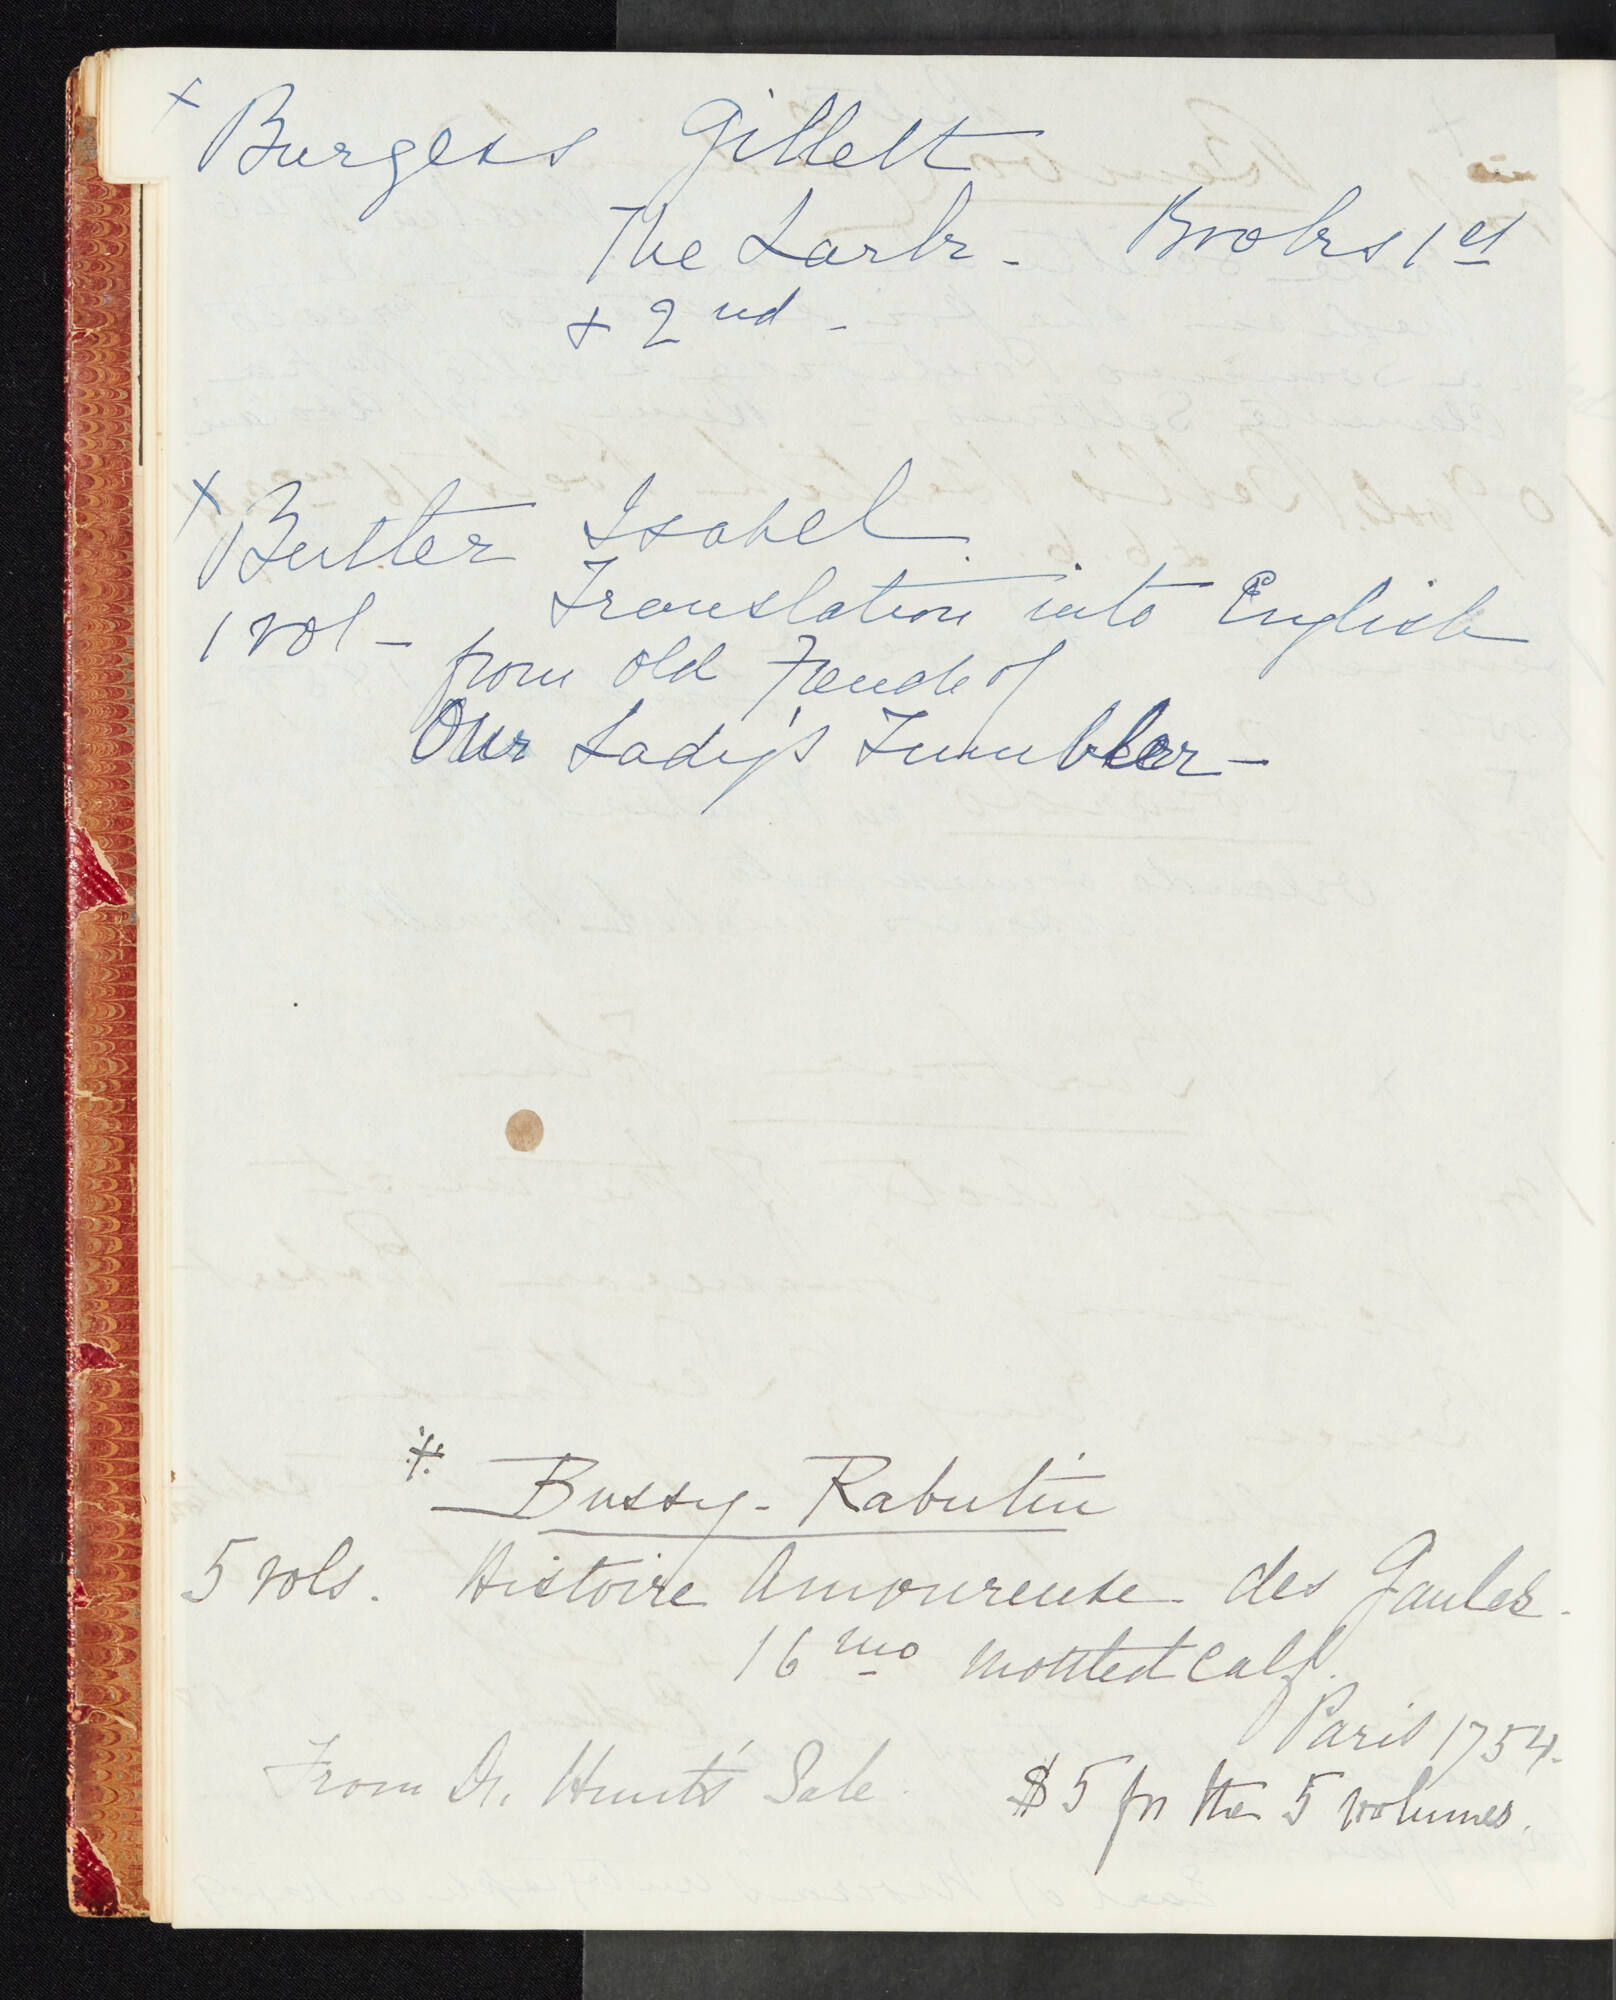 x Burgess Gillett
The Lark - Books 1st
+ 2nd -
x Butler Isabel
Translation into English
1 vol -
from old French of
Our Lady's Tumbler -
x Bussy-Rabutin
5 vols. Histoire Amoureuse des Gaules.
16mo mottled calf.
Paris 1754.
From Dr. Hunt's Sale. $5 for the 5 volumes.